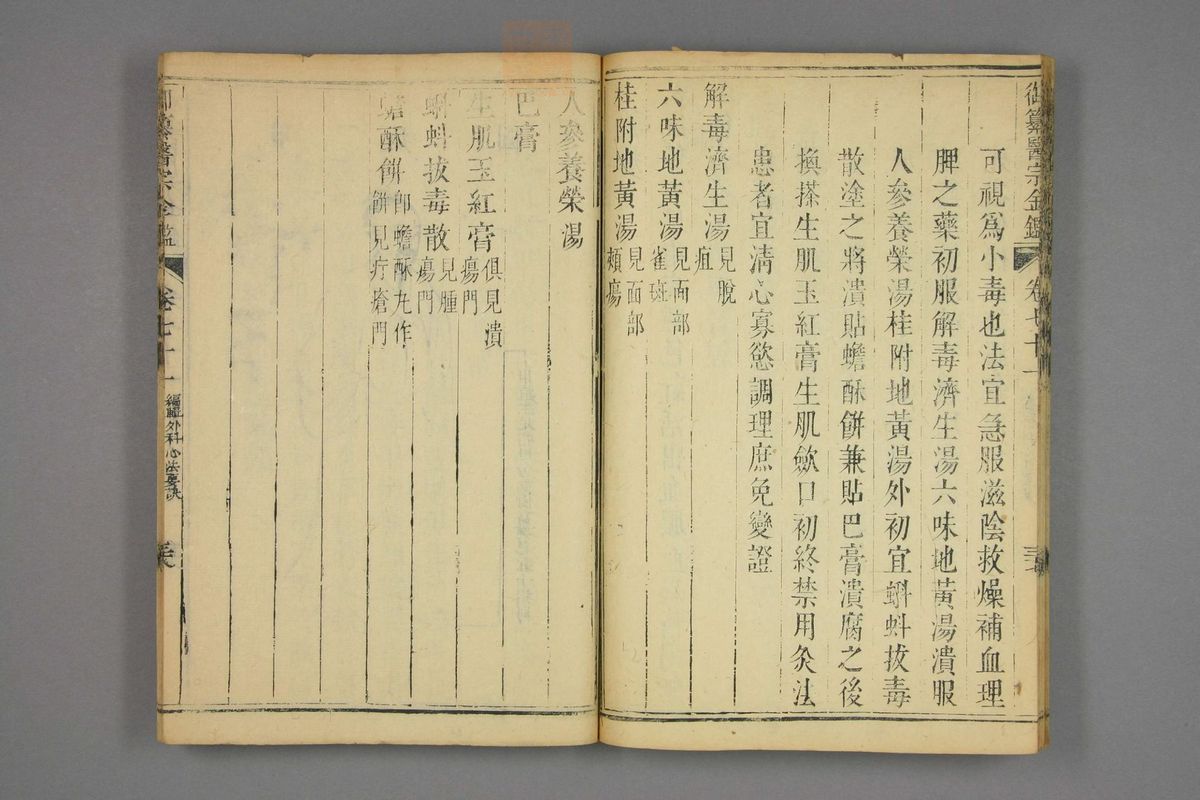 御纂醫宗金鑑 卷七十一
可視爲小毒也法宜急服滋陰救燥補血理
脾之藥初服解毒濟生湯六味地黃湯潰服
人參養榮湯桂附地黃湯外初宜蝌蚪拔毒
散塗之將潰貼蟾酥餅兼貼巴膏潰腐之後
換搽生肌玉紅膏生肌歛口初終禁用灸法
患者宜清心寡慾調理庶免變證
解毒濟生湯 見脫疽
六味地黃湯 見面部雀斑
桂附地黃湯 見面部頰瘍
人參養榮湯
巴膏
生肌玉紅膏 俱見潰瘍門
蝌蚪拔毒散 見腫瘍門
蟾酥餅 卽蟾酥丸作餅見疔瘡門
御纂醫宗金鑑 卷七十一 編輯外科心法要訣